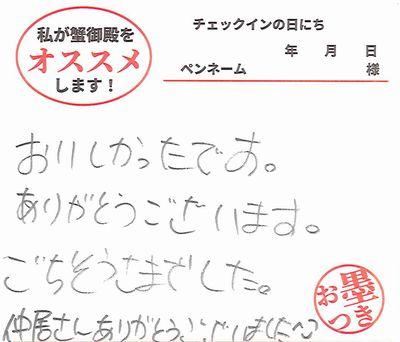 私が蟹御殿を
オススメ
します!
チェックインの日にち
年 月 日
ペンネーム 様
おいしかったです。
ありがとうございます。
ごちそうさまでした。
仲居さんありがとうございました
墨
おつき